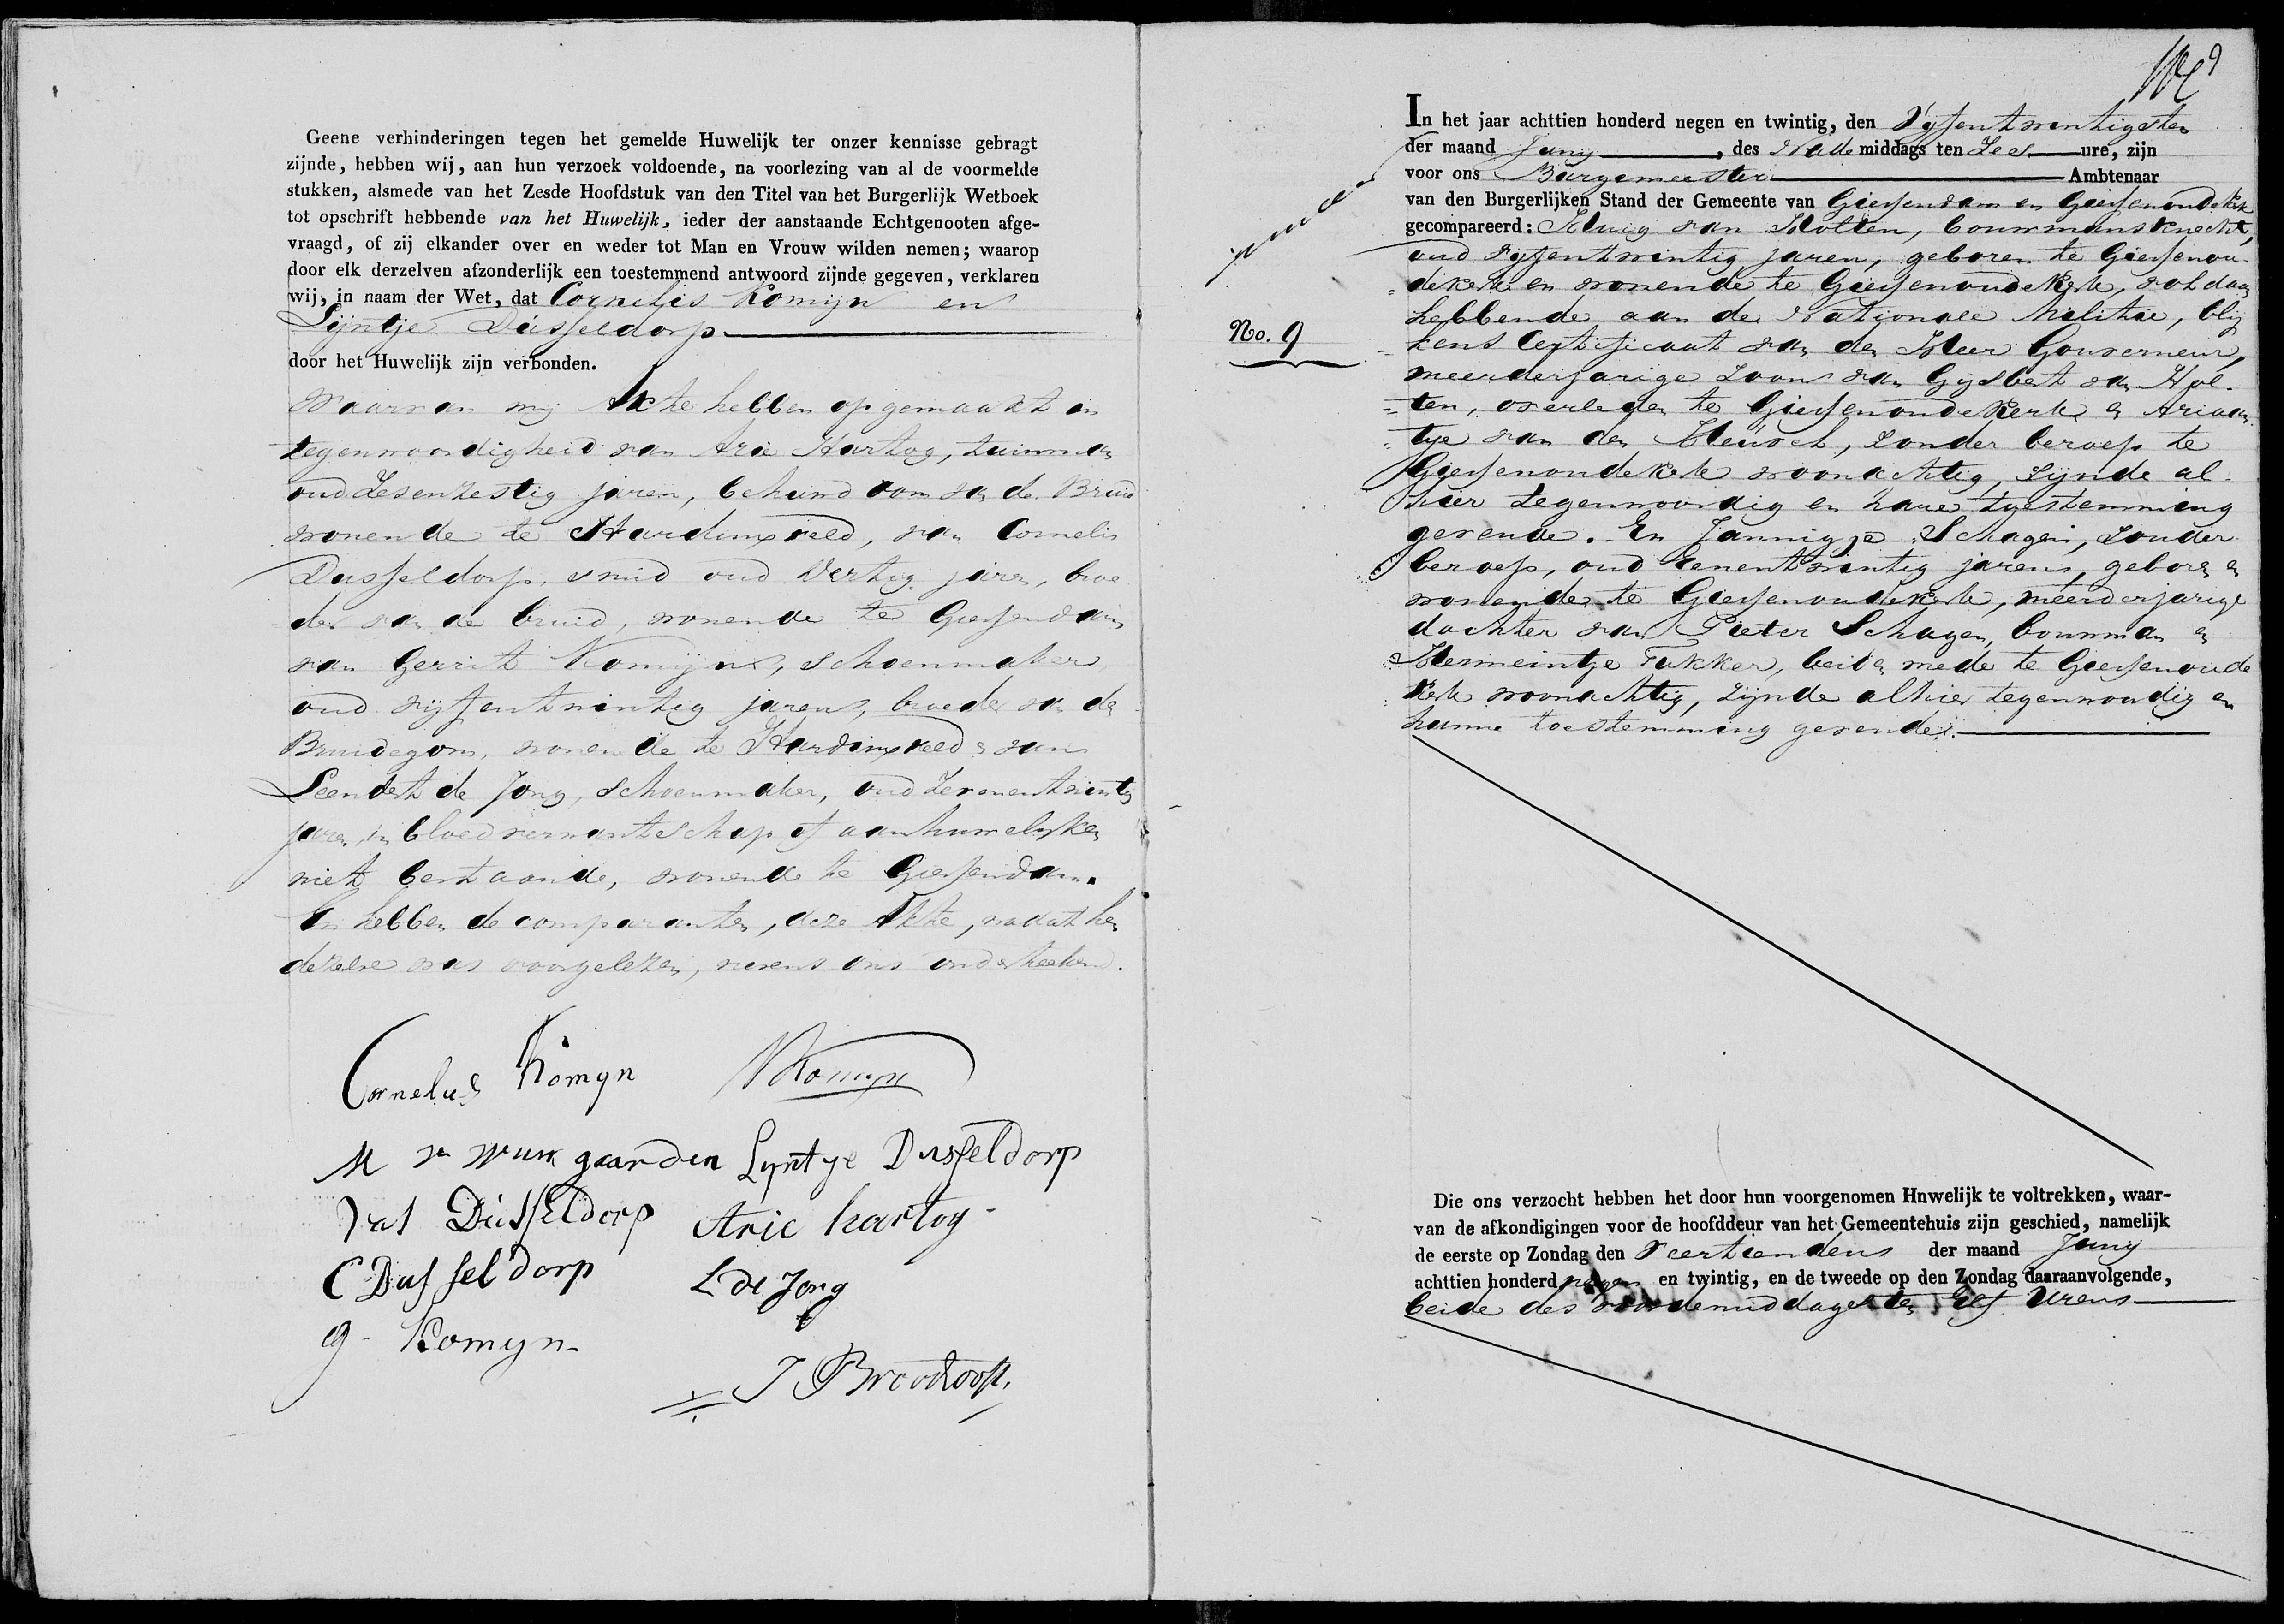 Geene verhinderingen tegen het gemelde Huwelijk ter onzer kennisse gebragt
zijnde, hebben wij, aan hun verzoek voldoende, na voorlezing van al de voormelde
stukken, alsmede van het Zesde Hoofdstuk van den Titel van het Burgerlijk Wetboek
tot opschrift hebbende van het Huwelijk, ieder der aanstaande Echtgenooten afge-
vraagd, of zij elkander over en weder tot Man en Vrouw wilden nemen; waarop
door elk derzelven afzonderlijk een toestemmend antwoord zijnde gegeven, verklaren
wij, in naam der Wet, dat Cornelis Komijn en
Lijntje Dusseldorp
door het Huwelijk zijn verbonden.
Waarvan wij Akte hebben opgemaakt in
tegenwoordigheid van Arie Hartog, tuinman
oud Zesenzestig jaren, behuwd oom van de Bruid
wonende te Hardinxveld, van Cornelis
Dusseldorp, smid oud Dertig jaren, broe
der van de bruid, wonende te Giessendam
van Gerrit Komijn, schoenmaker
oud vijfentwintig jaren, broeder van de
Bruidegom, wonende te Hardinxveld & van
Leendert de Jong, schoenmaker, oud Zevenentwintig
jaren, in bloedverwantschap of aanhuwelijken
niet bestaande, wonende te Giessendam.
En hebben de comparanten, deze Akte, nadat hen
dezelve was voorgelezen, nevens ons onderteekend.
Cornelus Komyn Komyn
M vn gaarden Lyntye Dusseldorp
Dusseldorp Arie hartog
C Dusseldorp L de Jong
g. Komyn
J
In het jaar achttien honderd negen en twintig, den Vijfentwintigsten
der maand Juny, des Nade middags ten Zes ure, zijn
voor ons Burgemeester Ambtenaar
van den Burgerlijken Stand der Gemeente van Giessendam en Giessenoudekerk
gecompareerd: Huig van Holten, bouwmansknecht,
oud vijfentwintig jaren, geboren te Giessenou-
dekerk en wonende te Giessenoudekerk, voldaan
hebbende aan de Nationale Militie, blij
No. 9
kens Certificaat van den Heer Gouverneur,
meerderjarige Zoon van Gijsbert van Hol-
ten, overleden te Giessenoudekerk en Ariaan
tje van den Heuvel, zonder beroep te
Giessenoudekerk woonachtig, zijnde al-
hier tegenwoordig en hare toestemming
gevende. En Jannigje Schagen, zonder
beroep, oud Eenentwintig jaren, geboren en
wonende te Giessenoudekerk, meerderjarige
dochter van Pieter Schagen, bouwman en
Hermeintje Fukker, beiden mede te Giessenoude
kerk woonachtig, zijnde alhier tegenwoordig en
hunne toestemming gevende.
Die ons verzocht hebben het door hun voorgenomen Hnwelijk te voltrekken, waar-
van de afkondigingen voor de hoofddeur van het Gemeentehuis zijn geschied, namelijk
de eerste op Zondag den Veertienden der maand Juny
achttien honderd negen en twintig, en de tweede op den Zondag daaraanvolgende,
beide des voordemiddags ten Elf Uren